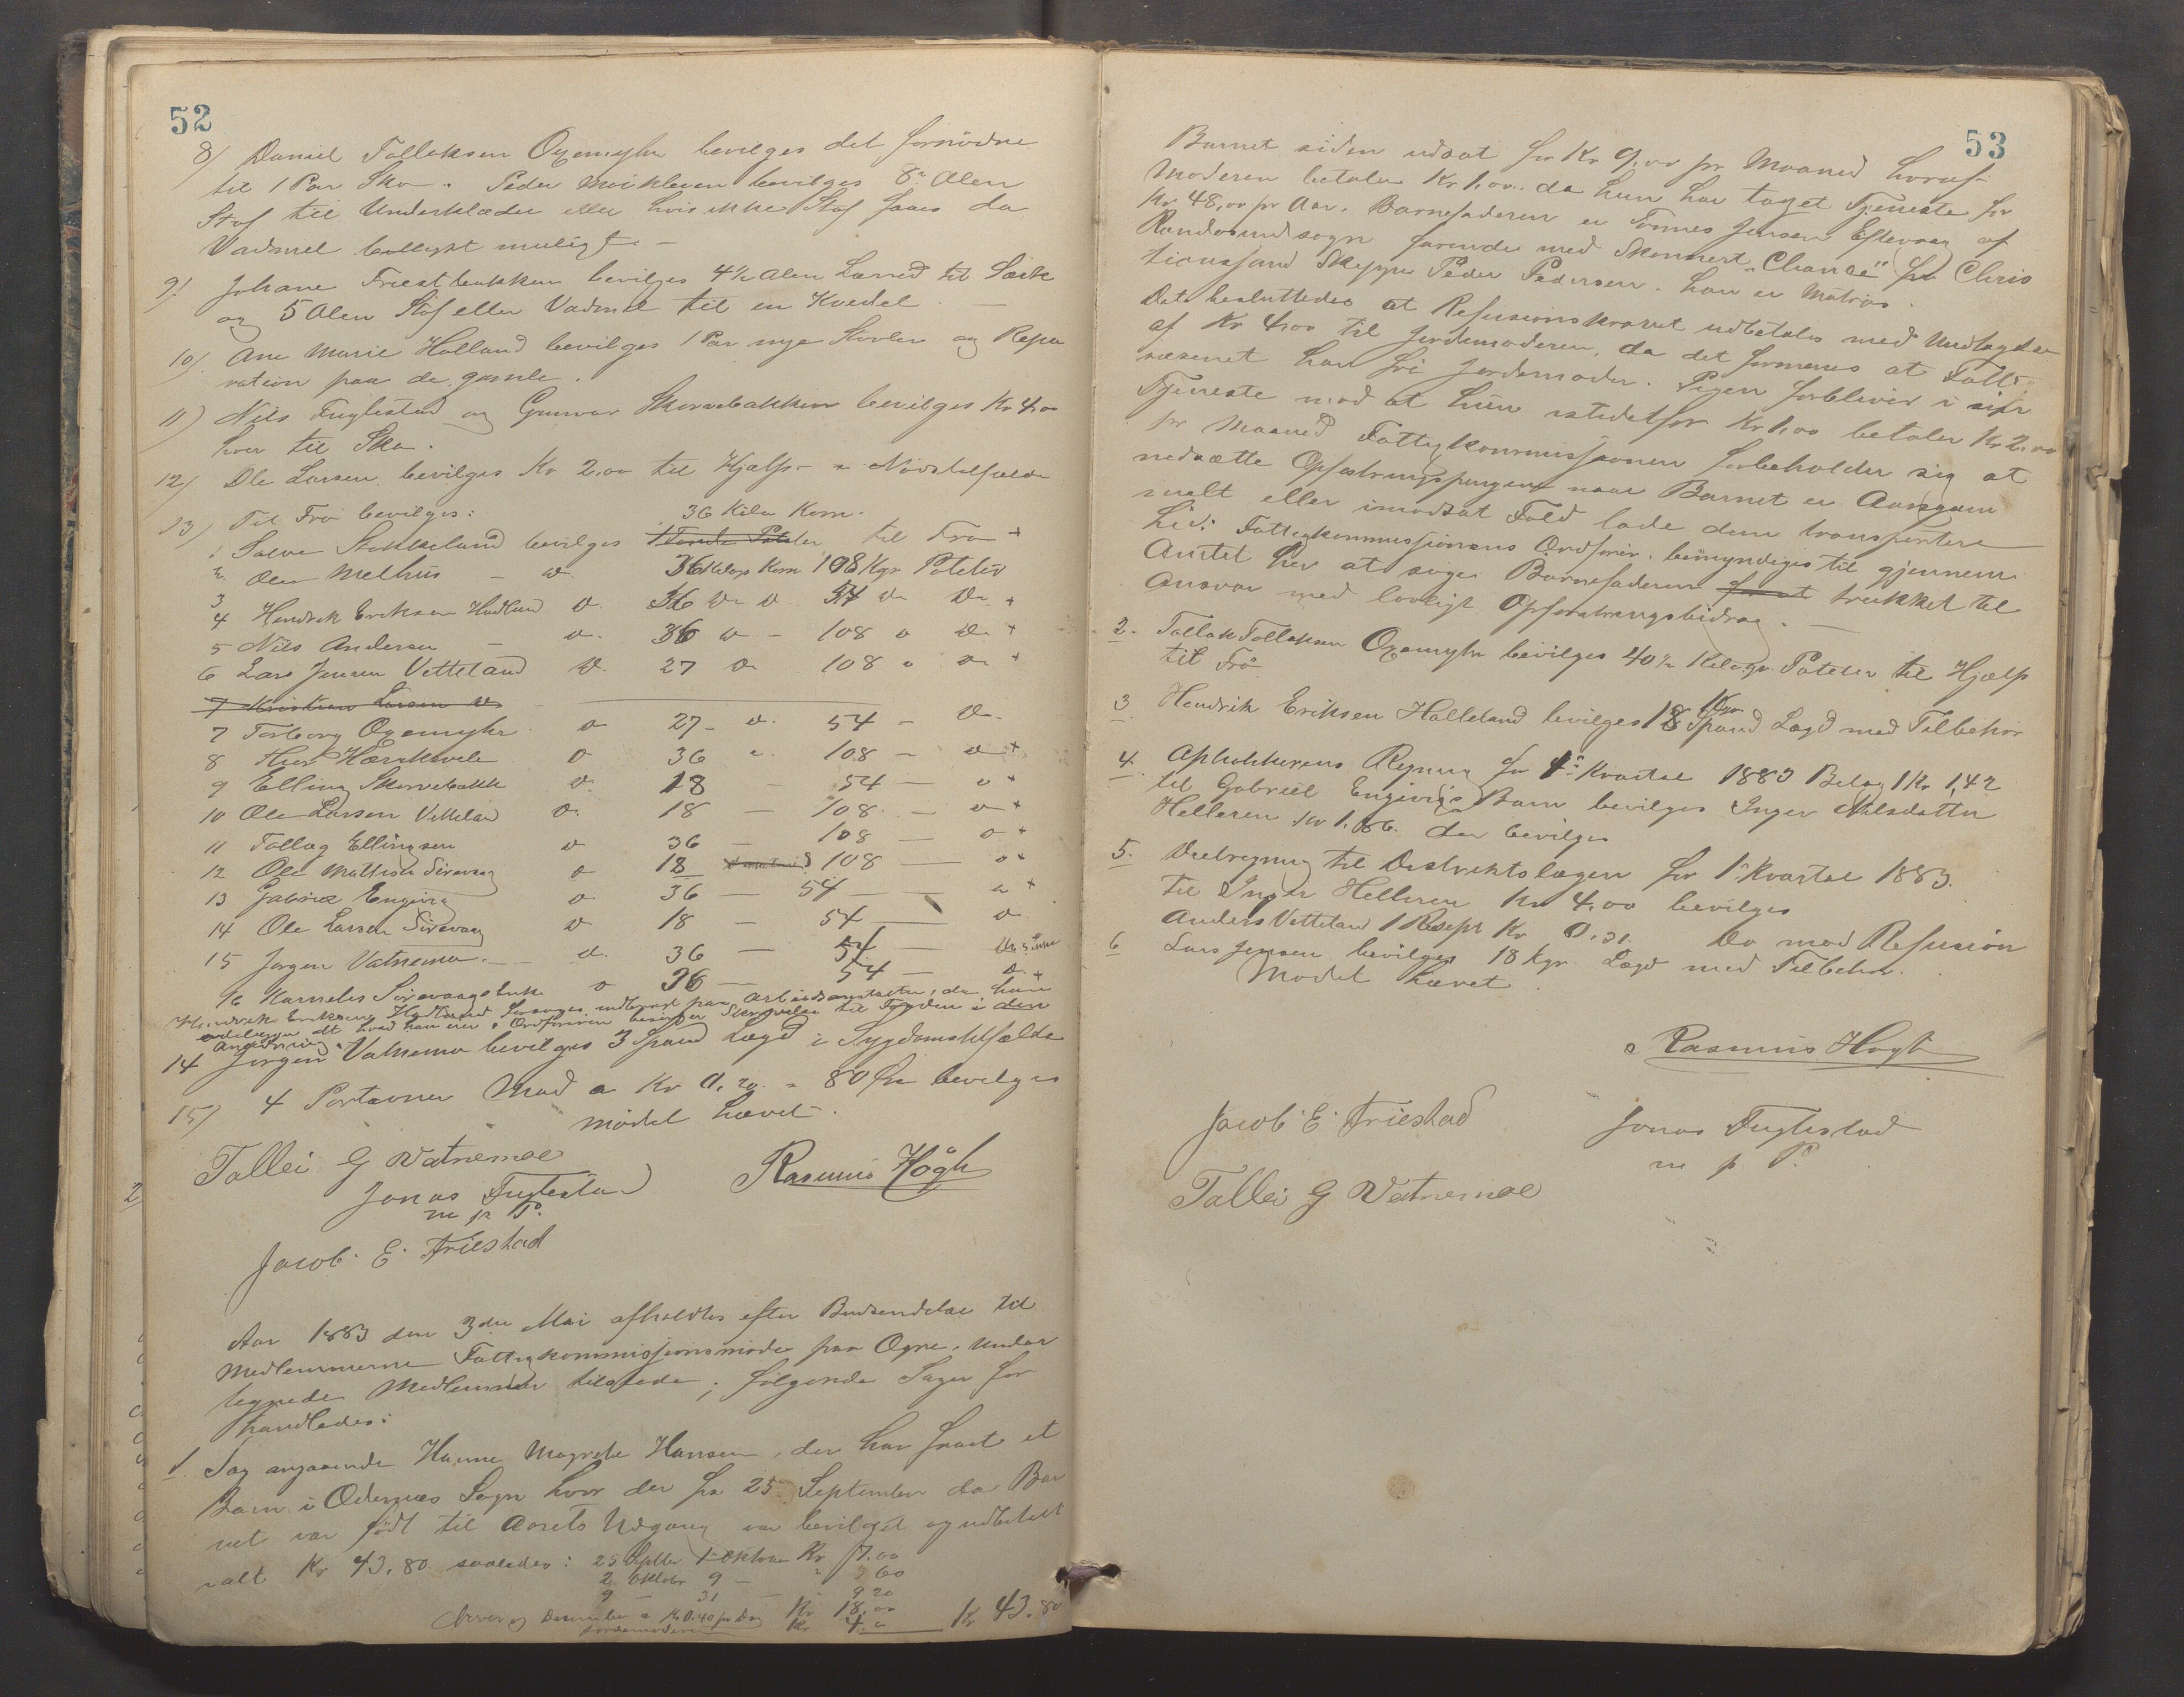 52
8/ Daniel Tollaksen Oxemyhr bevilges det fornödne
til 1 Par Sko. Peder Moikleven bevilges 8 Alen
Stof til Underklæder eller hvis ikke Stof faaes da
Vadmel billigst muligt. —
9/. Johane Friestbakken bevilges 4½ Alen Lærred til Særk
og 5 Alen Stof eller Vadmel til en Kvedel. —
10/. Ane Marie Holland bevilges 1 Par nye Skoler og Repa
ration paa de gamle.
11) Nils Fuglestad og Gunvor Skorvebakken bevilges Kr 4,00
hver til Sko.
12/ Ole Larsen bevilges Kr 2,00 til Hjælp i Nödstilfælde
13) Til Frö bevilges: 36 Kilo Korn.
1 Salve Stokkeland bevilges 1 Tönde Poteter til Frö +
2. Olea Melhus — do. 36 Kilogr Korn 108 Kgr Poteter
3
4 Hendrik Eriksen Hadland do. 36 do do. 54 do Do. +
5 Nils Andersen — do. 36 do — 108 do do. +
6 Lars Jensen Vetteland do. 27 do 108 " do +
7 Kristian Larsen do.
7 Torborg Oxemyhr do 27 — do. 54 — do.
8 do 36 " 108 — do +
9 Elling Skorvebakk do. 18 — 54 — do +
10 Ole Larsen Vetteland do. 18 — 108 — do +
11 Tollag Ellingsen do 36 — 108 — do +
12 Ole Mathisen Sirevaag do 18 108 — do +
13 Gabriel Engivig do 36 — 54 — do +
14 Ole Larsen Sirevaag do 18 — 54 — do
15 Jørgen Vatnemo — do. 36 — 54 —
16 Karnelius Sirevaagsbuk do 36 — 54 — do +
Hendrik Eriksen Hadland forsøges indbragt paa Arbeidsanstalten, da han
ødelægger alt hvad han eier. Ordføreren besørger Skrivelse til Fogden i den
Anledning.
14 Jørgen Vatnemo bevilges 3 Spand Lægd i Sygdomstilfælde
15/ 4 Portioner Mad a Kr 0,20 = 80 Öre bevilges
Mödet hævet.
Tollei G Vatnemoe
Rasmus Högh
Jonas Fuglestad
m p P.
Jacob E Friestad
Aar 1883 den 3die Mai afholdtes efter Budsendelse til
Medlemmerne Fattigkommissionsmöde paa Ogne. Under
tegnede Medlemmer tilstede; fölgende Sager for
handledes:
1. Sag angaaende Hanne Magrete Hansen, der har faaet et
Barn i Odernæs Sogn hvor der fra 25 September da Bar
net var födt til Aarets Udgang var bevilget og udbetalt
ialt Kr 43,80. saaledes: 25 Septbr 1 Oktober Kr 7.00
2 Oktobr 9 — " 3 60
9 — 31 — " 9 20
Novbr og December a Kr 0.40 pr Dag Kr 18,00
Jordemoderen Kr 4. " Kr 43.80
53
Barnet siden udsat for Kr 9,00 pr Maaned hvoraf
Moderen betaler Kr 1,00. da hun har taget Tjeneste for
Kr 48,00 pr Aar. Barnefaderen er Tönnes Jensen Eftevaag af
Randøsund sogn farende med Skonnert "Chance" fra Chris
tianssand Skipper Peder Pedersen. han er Matros.
Det besluttedes at Refusionskravet udbetales med Undtagelse
af Kr 4,00 til Jordemoderen, da det formenes at Fattig
væsenet har fri Jordemoder. Pigen forbliver i sin
Tjeneste mod at hun istedetfor Kr 1,00 betaler Kr 2,00
pr Maaned Fattigkommissionen forbeholder sig at
nedsætte Opfostringspengene naar Barnet er Aargam
malt eller imodsat Fald lade dem transportere
hid. Fattigkommissionens Ordförer bemyndiges til gjennem
Amtet her at söge Barnefaderen for at trukket til
Ansvar med lovligt Opfostringsbidrag. —
2. Tollak Tollaksen Oxemyhr bevilges 40½ Kilogr. Poteter til Hjælp
til Frö
3 Hendrik Eriksen Halleland bevilges 18 Kgr Spand Lægd med Tilbehör
4. Apothekerens Regning for 1ste Kvartal 1883 Belag Kr 1,42
til Gabriel Engivigs Barn bevilges Inger Nilsdatter
Helleren Kr 1.86. der bevilges
5. Deelregning til Distriktslægen for 1ste Kvartal 1883.
Til Inger Helleren Kr 4,00 bevilges
Anders Vetteland 1 Resept Kr 0.31. Do mod Refusion
6 Lars Jensen bevilges 18 Kgr Lægd med Tilbehör.
Mödet hævet
Rasmus Høgh
Jacob E Friestad
Jonas Fuglestad
m p P.
Tollei G Vatnemoe